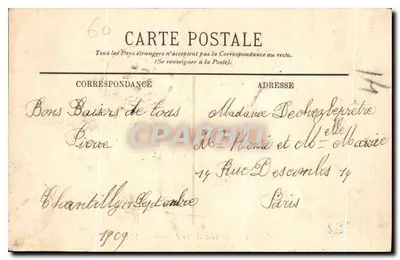 60
CARTE POSTALE
Tous les Pays étrangers n'acceptent pas la Correspondance au recto.
(Se renseigner à la Poste).
CORRESPONDANCE
ADRESSE
14
Bons Baisers de tous
Pierre
Chantilly Septembre
1909
Madame
Henri et Melle Marie
14 Rue Descombes 14
Paris